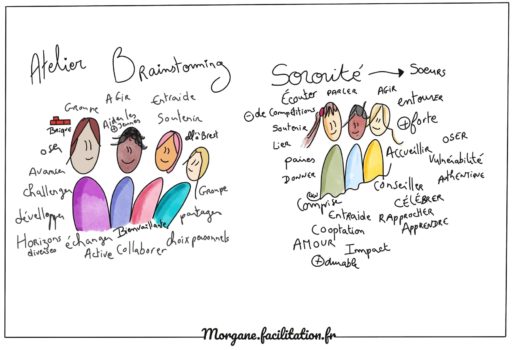 Atelier Brainstorming
Groupe
AGIR
Entraide
Brique
Aider les
⊕ jeunes
Soutenir
oser
Brest
Avancer
Groupe
Challenger
développer
partager
Bienveillance
Horizons
diverses
échanger
Active
Collaborer
choix personnels
Sororité → Soeurs
Écouter
PARLER
AGIR
entourer
⊖ de compétitions
⊕ forte
Soutenir
OSER
LIER
Accueillir
paires
Vulnérabilité
DONNER
Authentique
Comprise
Conseiller
CÉLÉBRER
Entraide
RAPPROCHER
Cooptation
APPRENDRE
AMOUR
Impact
⊕ durable
Morgane.facilitation.fr